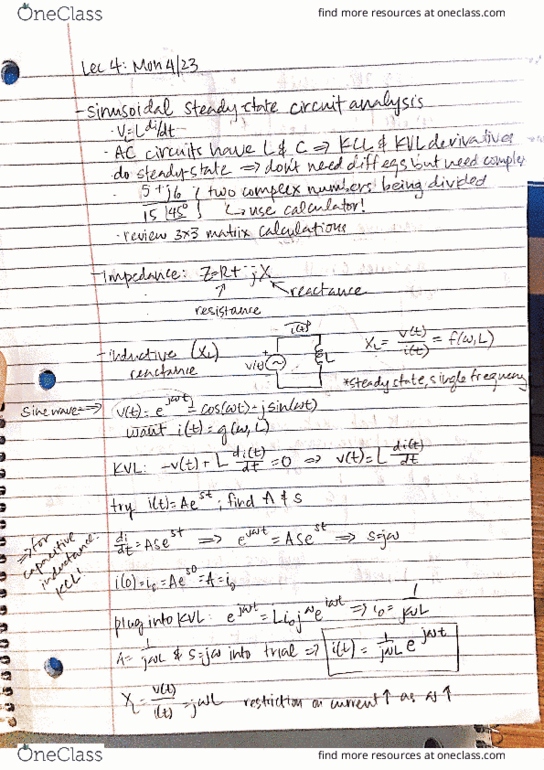 OneClass
find more resources at oneclass.com
Lec 4: Mon 4/23
- Sinusoidal steady-state circuit analysis
· V=L di/dt
· AC circuits have L & C ⇒ KCL & KVL derivatives
do steady state ⇒ don't need diff eqs but need complex
· 5+j6 / 15∠45° } two complex numbers being divided
↳ use calculator!
· review 3x3 matrix calculations
- Impedance: Z=R+jX
reactance
resistance
i(t)
- inductive (XL) reactance
v(t)
+
L
XL = v(t)/i(t) = f(ω,L)
*steady state, single frequency
Sine wave ⇒ v(t)=e^jωt = cos(ωt)-jsin(ωt)
want i(t)=g(ω,L)
KVL: -v(t)+L di(t)/dt=0 ⇒ v(t)=L di(t)/dt
try i(t)=Ae^st; find A & s
di/dt=Ase^st ⇒ e^jωt=Ase^st ⇒ s=jω
⇒ for capacitive inductance: KCL!
i(0)=i₀=Ae^s0=A=i₀
plug into KVL: e^jωt=Li₀jωe^jωt ⇒ i₀=1/jωL
A=1/jωL & s=jω into trial ⇒ i(t)=1/jωL e^jωt
XL=v(t)/i(t)=jωL restriction on current ↑ as ω ↑
OneClass
find more resources at oneclass.com